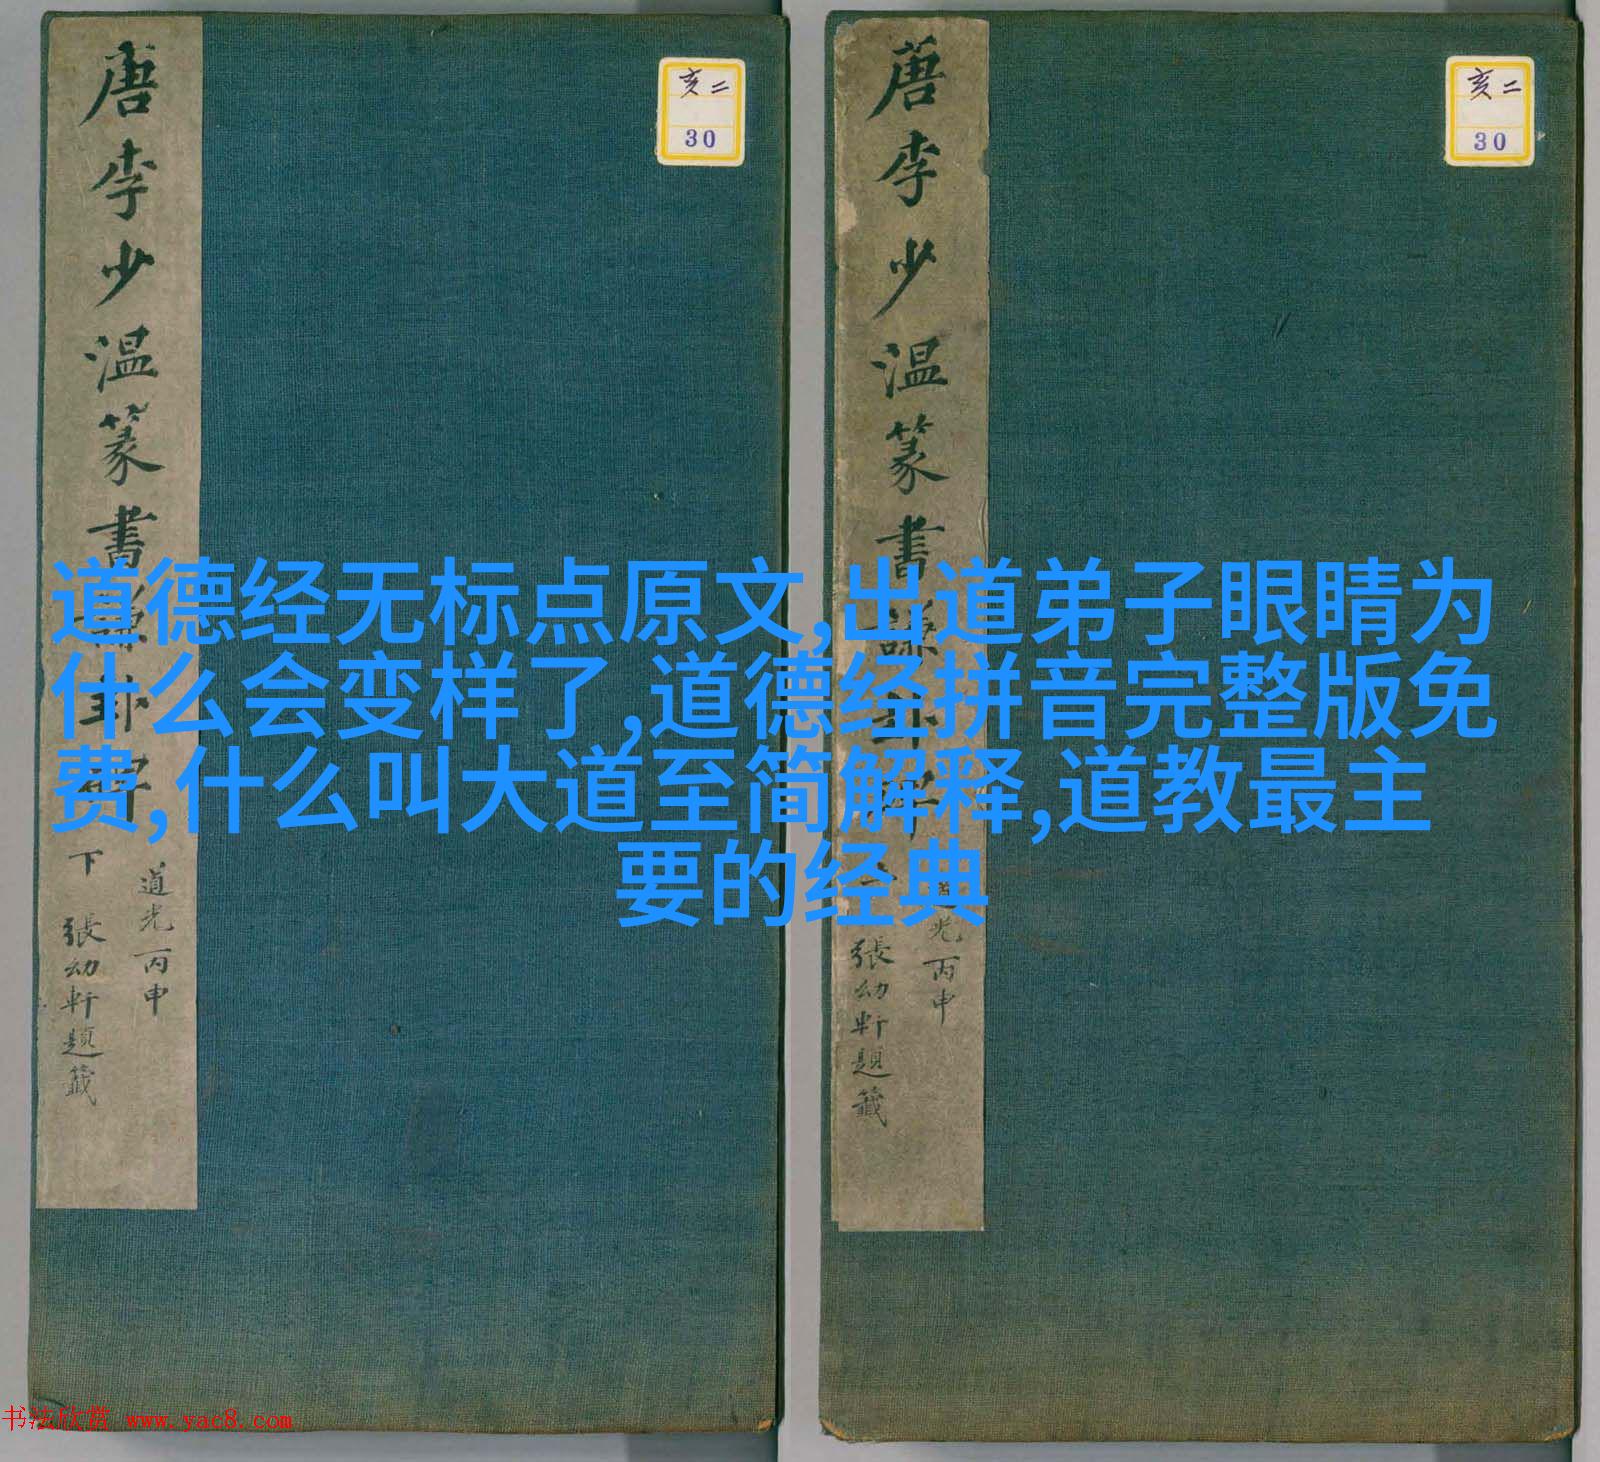 唐李少温篆書謙卦字
下
道光丙申
張幼軒題籤
亥二
30
唐李少温篆書謙卦字
道光丙申
張幼軒題籤
亥二
30
道德经无标点原文,出道弟子眼睛为
什么会变样了,道德经拼音完整版免
费,什么叫大道至简解释,道教最主
要的经典
书法欣赏 www.yac8.com